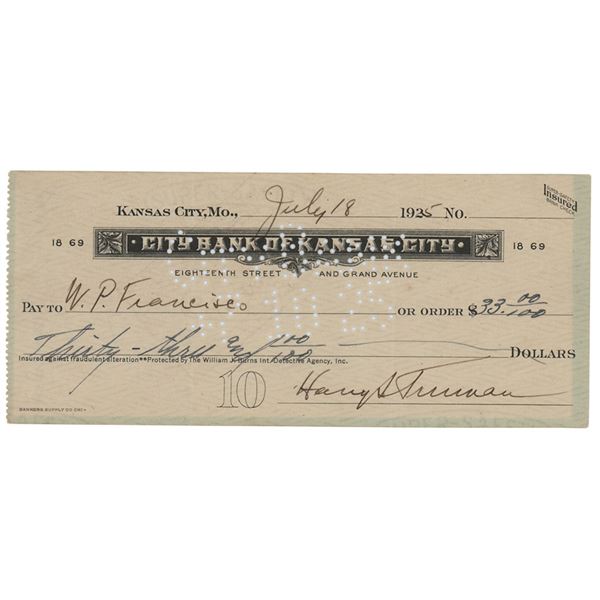 SUPER-SAFETY
Insured
BANK CHECK
KANSAS CITY, MO., July 18 1925 NO.
18 69 CITY BANK OF KANSAS CITY 18 69
EIGHTEENTH STREET AND GRAND AVENUE
PAY TO W. P. Francisco OR ORDER $33.00/100
Thirty-three & 00/100 DOLLARS
Insured against fraudulent alteration**Protected by The William J. Burns Int. Detective Agency, Inc.
10 Harry S Truman
BANKERS SUPPLY CO CHI